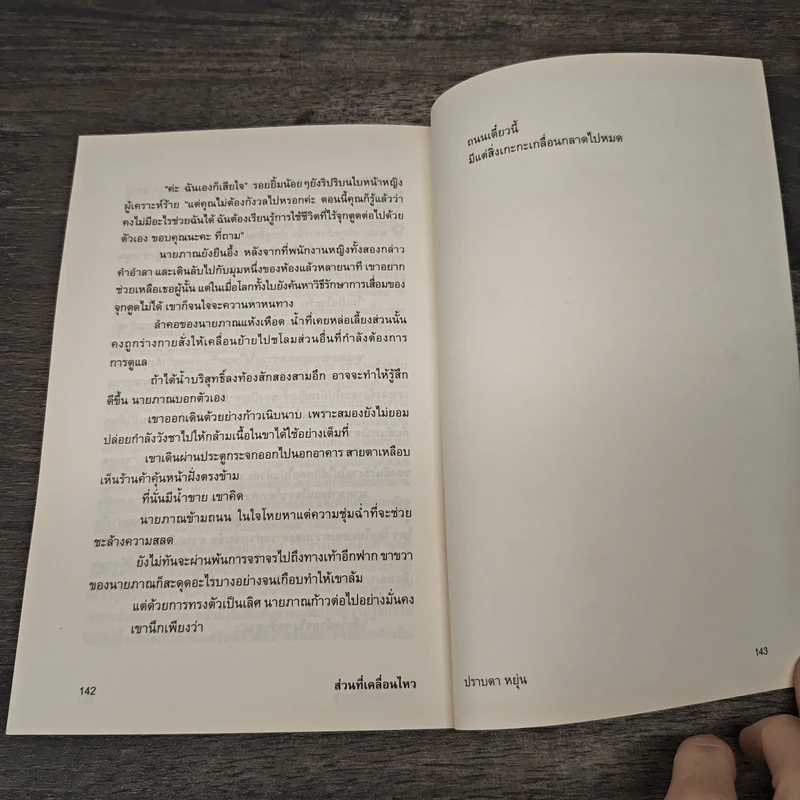 "ค่ะ ฉันเองก็เสียใจ" รอยยิ้มน้อยๆยังริปริบนใบหน้าหญิง
ผู้เคราะห์ร้าย "แต่คุณไม่ต้องกังวลไปหรอกค่ะ ตอนนี้คุณก็รู้แล้วว่า
คงไม่มีอะไรช่วยฉันได้ ฉันต้องเรียนรู้การใช้ชีวิตที่ไร้จุกตูดต่อไปด้วย
ตัวเอง ขอบคุณนะคะ ที่ถาม"
นายภาณยังยืนอึ้ง หลังจากที่พนักงานหญิงทั้งสองกล่าว
คำอำลา และเดินลับไปกับมุมหนึ่งของห้องแล้วหลายนาที เขาอยาก
ช่วยเหลือเธอผู้นั้น แต่ในเมื่อโลกทั้งใบยังค้นหาวิธีรักษาการเสื่อมของ
จุกตูดไม่ได้ เขาก็จนใจจะควานหาหนทาง
ลำคอของนายภาณแห้งเหือด น้ำที่เคยหล่อเลี้ยงส่วนนั้น
คงถูกร่างกายสั่งให้เคลื่อนย้ายไปชโลมส่วนอื่นที่กำลังต้องการ
การดูแล
ถ้าได้น้ำบริสุทธิ์ลงท้องสักสองสามอึก อาจจะทำให้รู้สึก
ดีขึ้น นายภาณบอกตัวเอง
เขาออกเดินด้วยย่างก้าวเนิบนาบ เพราะสมองยังไม่ยอม
ปล่อยกำลังวังชาไปให้กล้ามเนื้อในขาได้ใช้อย่างเต็มที่
เขาเดินผ่านประตูกระจกออกไปนอกอาคาร สายตาเหลือบ
เห็นร้านค้าคุ้นหน้าฝั่งตรงข้าม
ที่นั่นมีน้ำขาย เขาคิด
นายภาณข้ามถนน ในใจโหยหาแต่ความชุ่มฉ่ำที่จะช่วย
ชะล้างความสลด
ยังไม่ทันจะผ่านพ้นการจราจรไปถึงทางเท้าอีกฟาก ขาขวา
ของนายภาณก็สะดุดอะไรบางอย่างจนเกือบทำให้เขาล้ม
แต่ด้วยการทรงตัวเป็นเลิศ นายภาณก้าวต่อไปอย่างมั่นคง
เขานึกเพียงว่า
142
ส่วนที่เคลื่อนไหว
ถนนเดี๋ยวนี้
มีแต่สิ่งเกะกะเกลื่อนกลาดไปหมด
143
ปราบดา หยุ่น